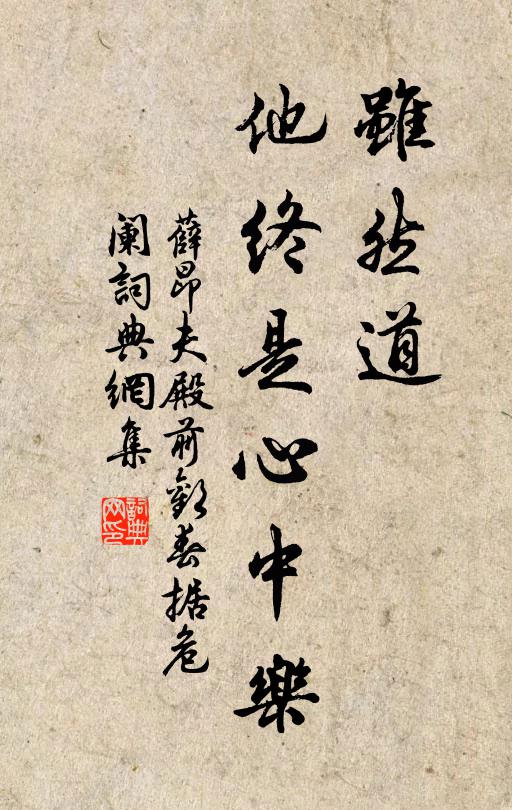 雖然道
他終是心中樂
薛昂夫殿前歡春据危
闌詞典網集
詞典
网印